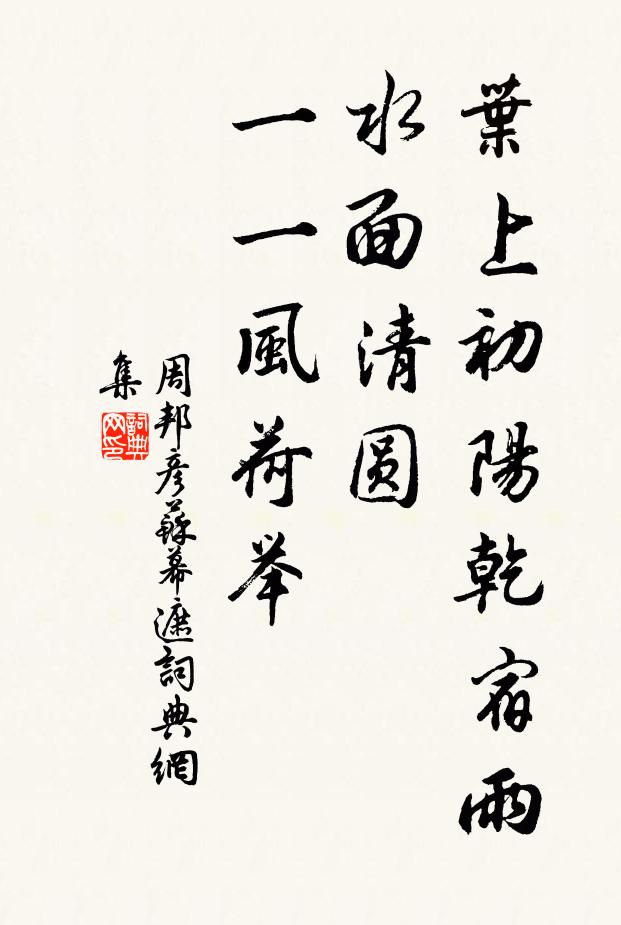 葉上初陽乾宿雨
水面清圓
一一風荷举
周邦彥蘇幕遮詞典網
集
詞典
网印